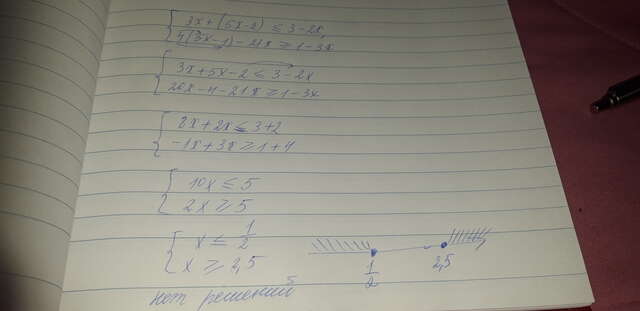 3x+(5x-2) ≤ 3-2x,
4(3x-1)-21x ≥ 1-3x
3x+5x-2 ≤ 3-2x
20x-4-21x ≥ 1-3x
8x+2x ≤ 3+2
-1x+3x ≥ 1+4
10x ≤ 5
2x ≥ 5
x ≤ 1/2
x ≥ 2,5
1/2 2,5
нет решений